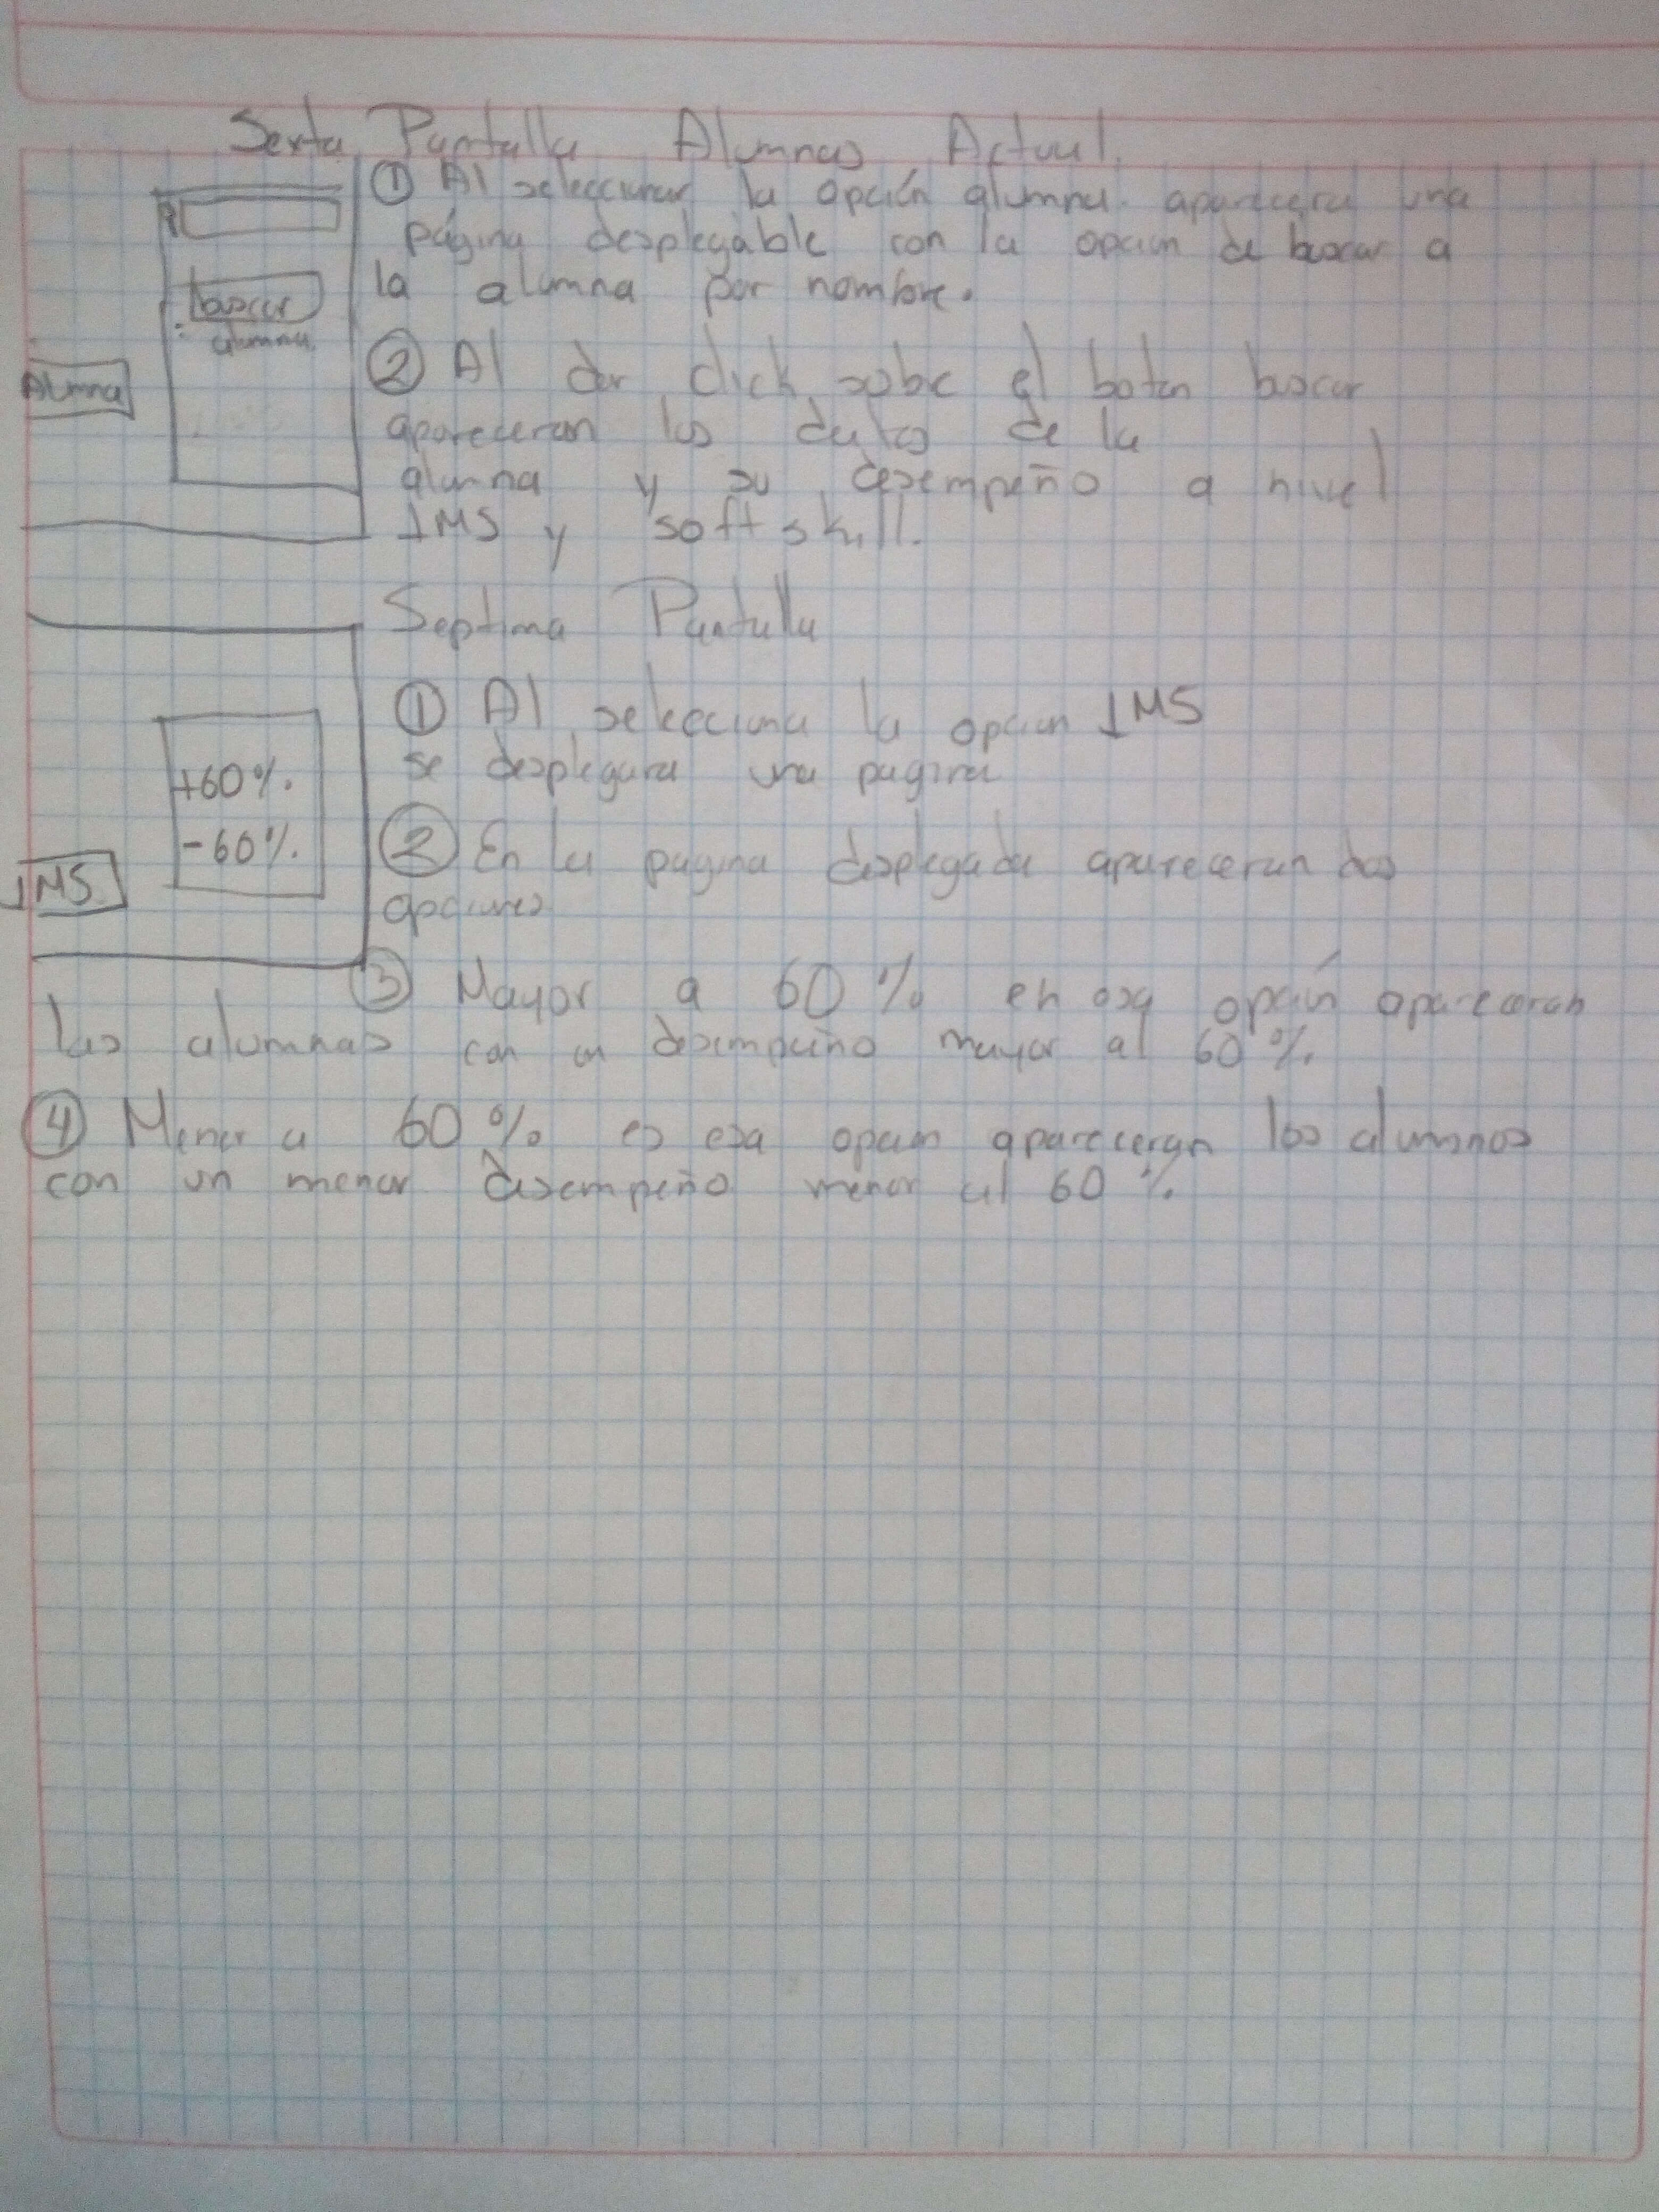 Sexta Pantalla Alumnas Actual.
① Al seleccionar la opción alumna aparecera una
página desplegable con la opcion de buscar a
la alumna por nombre.
buscar
alumna
Alumna
② Al dar click sobre el boton buscar
apareceran los datos de la
alumna y su desempeño a nivel
LMS y soft skill.
Septima Pantalla
① Al selecciona la opcion LMS
se desplegara una pagina
+60%.
-60%.
LMS
② En la pagina desplegada apareceran dos
opciones
③ Mayor a 60% en esa opción apareceran
las alumnas con un desempeño mayor al 60%.
④ Menor a 60% es esa opcion apareceran los alumnos
con un menor desempeño menor al 60%.